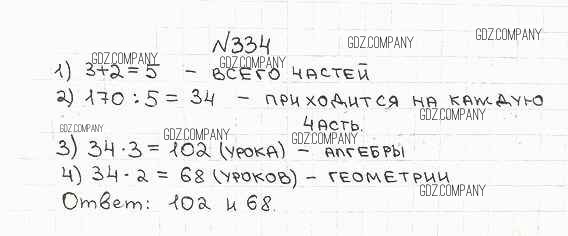 №334
GDZ.COMPANY
GDZ.COMPANY
GDZ.COMPANY
GDZ.COMPANY
1) 3+2=5 - ВСЕГО ЧАСТЕЙ
2) 170 : 5 = 34 - ПРИХОДИТСЯ НА КАЖДУЮ
GDZ.COMPANY
ЧАСТЬ.
GDZ.COMPANY
GDZ.COMPANY
GDZ.COMPANY
3) 34 · 3 = 102 (УРОКА) - АЛГЕБРЫ
4) 34 · 2 = 68 (УРОКОВ) - ГЕОМЕТРИИ
GDZ.COMPANY
Ответ: 102 и 68.